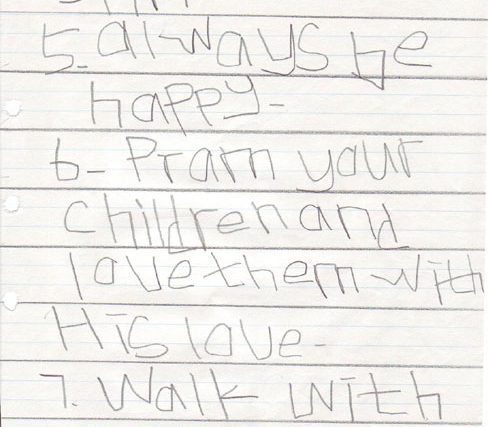 5. always be
happy-
6- Pram your
children and
love them with
His love-
7. Walk with